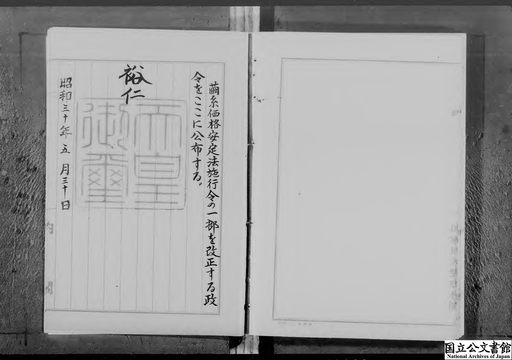 繭糸価格安定法施行令の一部を改正する政
令をここに公布する。
裕仁
天皇
御璽
昭和三十年五月三十日
国立公文書館
National Archives of Japan